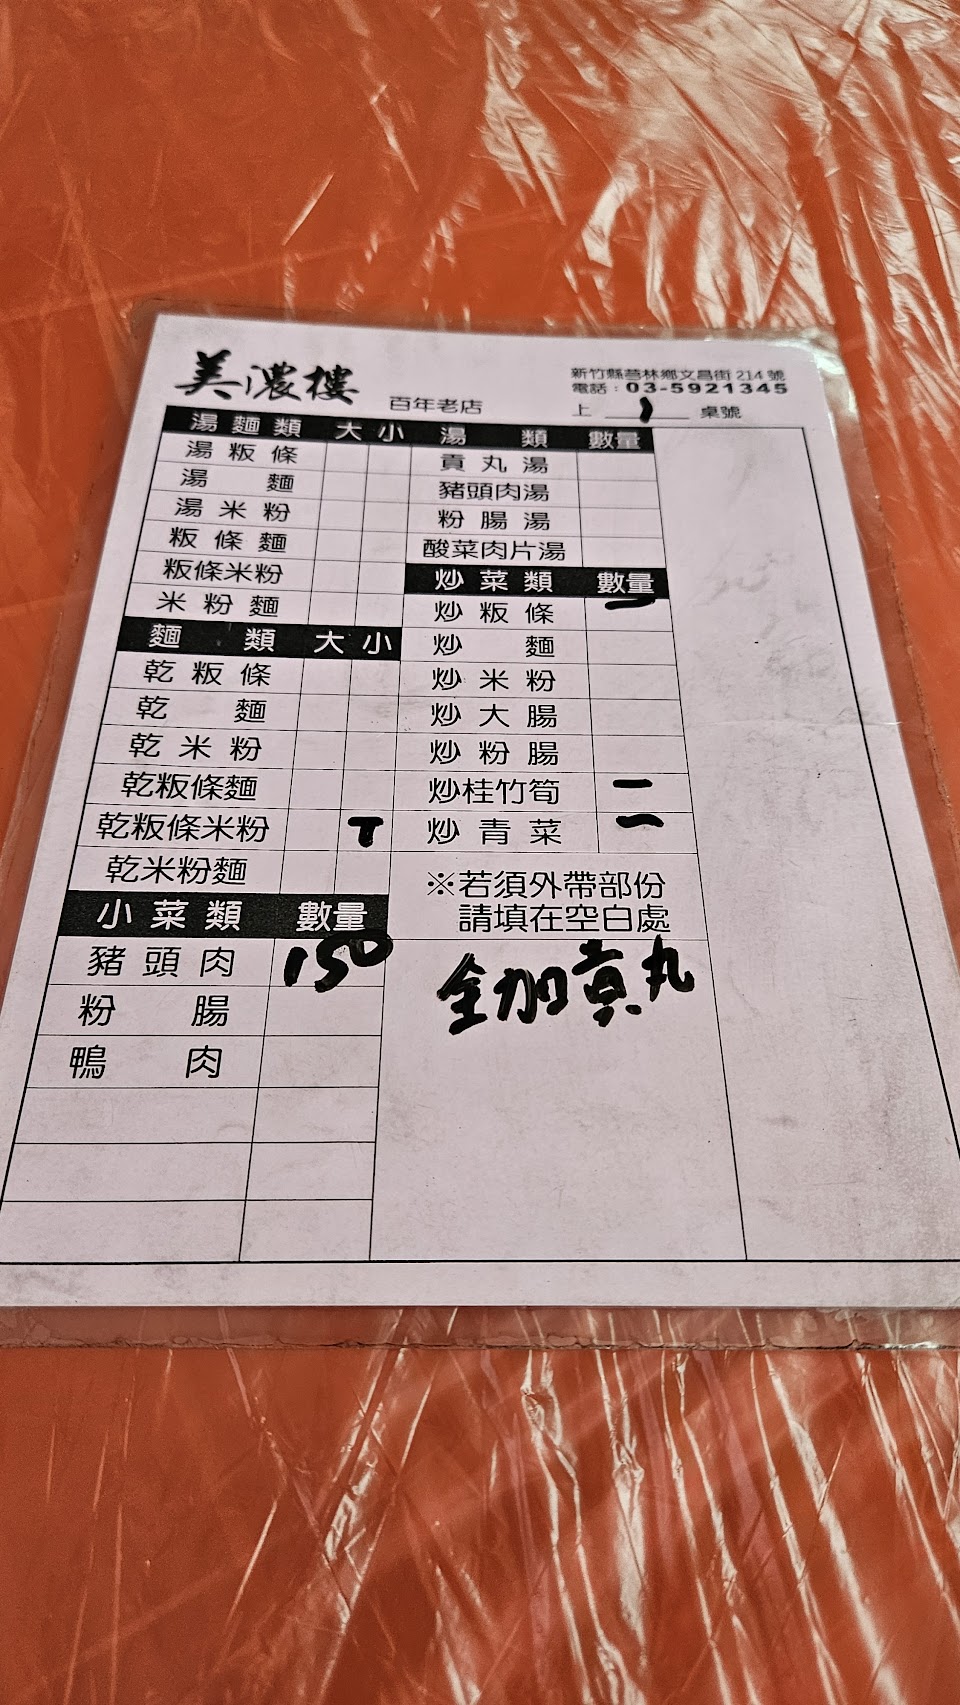 美濃樓 百年老店
新竹縣芎林鄉文昌街 214 號
電話：03-5921345
上 1 桌號
湯麵類 大 小
湯粄條
湯麵
湯米粉
粄條麵
粄條米粉
米粉麵
麵類 大 小
乾粄條
乾麵
乾米粉
乾粄條麵
乾粄條米粉 T
乾米粉麵
小菜類 數量
豬頭肉 150
粉腸
鴨肉
湯類 數量
貢丸湯
豬頭肉湯
粉腸湯
酸菜肉片湯
炒菜類 數量
炒粄條 一
炒麵
炒米粉
炒大腸
炒粉腸
炒桂竹筍 一
炒青菜 一
※若須外帶部份
請填在空白處
全加貢丸